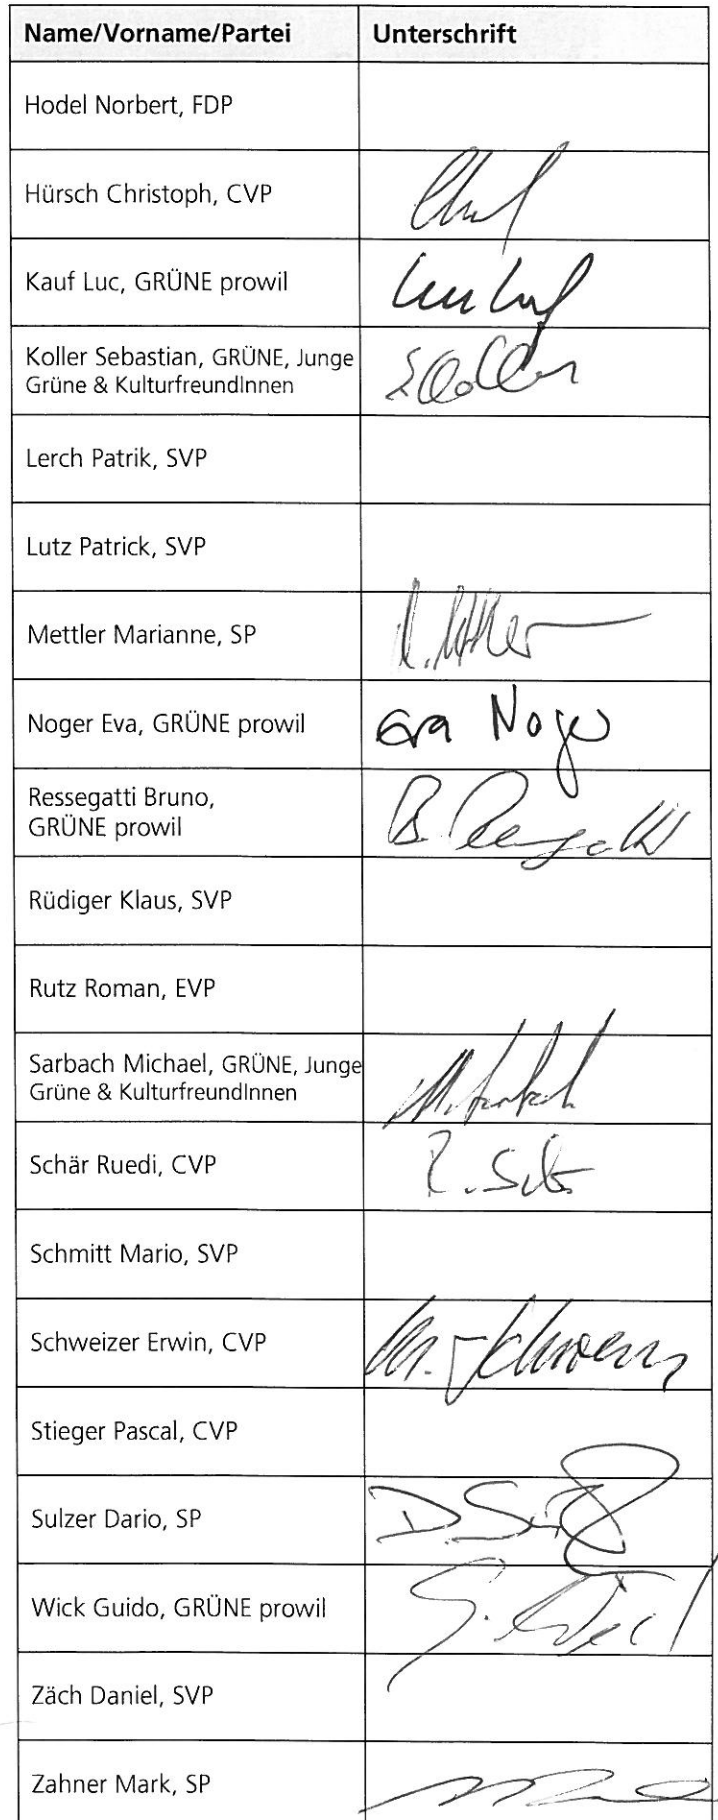 Name/Vorname/Partei Unterschrift
Hodel Norbert, FDP
Hürsch Christoph, CVP
Kauf Luc, GRÜNE prowil
Koller Sebastian, GRÜNE, Junge
Grüne & KulturfreundInnen
Lerch Patrik, SVP
Lutz Patrick, SVP
Mettler Marianne, SP
Noger Eva, GRÜNE prowil Eva Noger
Ressegatti Bruno,
GRÜNE prowil
Rüdiger Klaus, SVP
Rutz Roman, EVP
Sarbach Michael, GRÜNE, Junge
Grüne & KulturfreundInnen
Schär Ruedi, CVP
Schmitt Mario, SVP
Schweizer Erwin, CVP
Stieger Pascal, CVP
Sulzer Dario, SP
Wick Guido, GRÜNE prowil
Zäch Daniel, SVP
Zahner Mark, SP